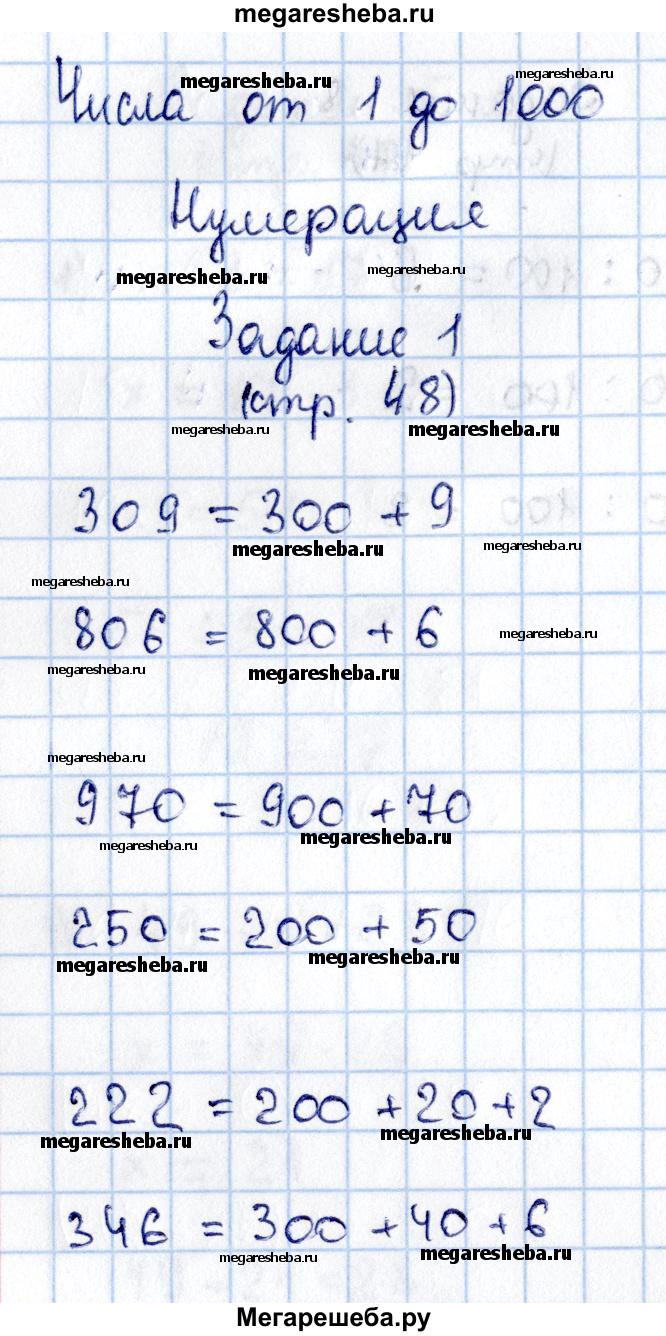 megaresheba.ru
megaresheba.ru megaresheba.ru
Числа от 1 до 1000
Нумерация
megaresheba.ru megaresheba.ru
Задание 1
(стр. 48)
megaresheba.ru megaresheba.ru
309 = 300 + 9
megaresheba.ru megaresheba.ru
megaresheba.ru
806 = 800 + 6 megaresheba.ru
megaresheba.ru megaresheba.ru
megaresheba.ru
970 = 900 + 70
megaresheba.ru megaresheba.ru
250 = 200 + 50
megaresheba.ru megaresheba.ru
222 = 200 + 20 + 2
megaresheba.ru megaresheba.ru
346 = 300 + 40 + 6
megaresheba.ru megaresheba.ru
Мегарешеба.ру